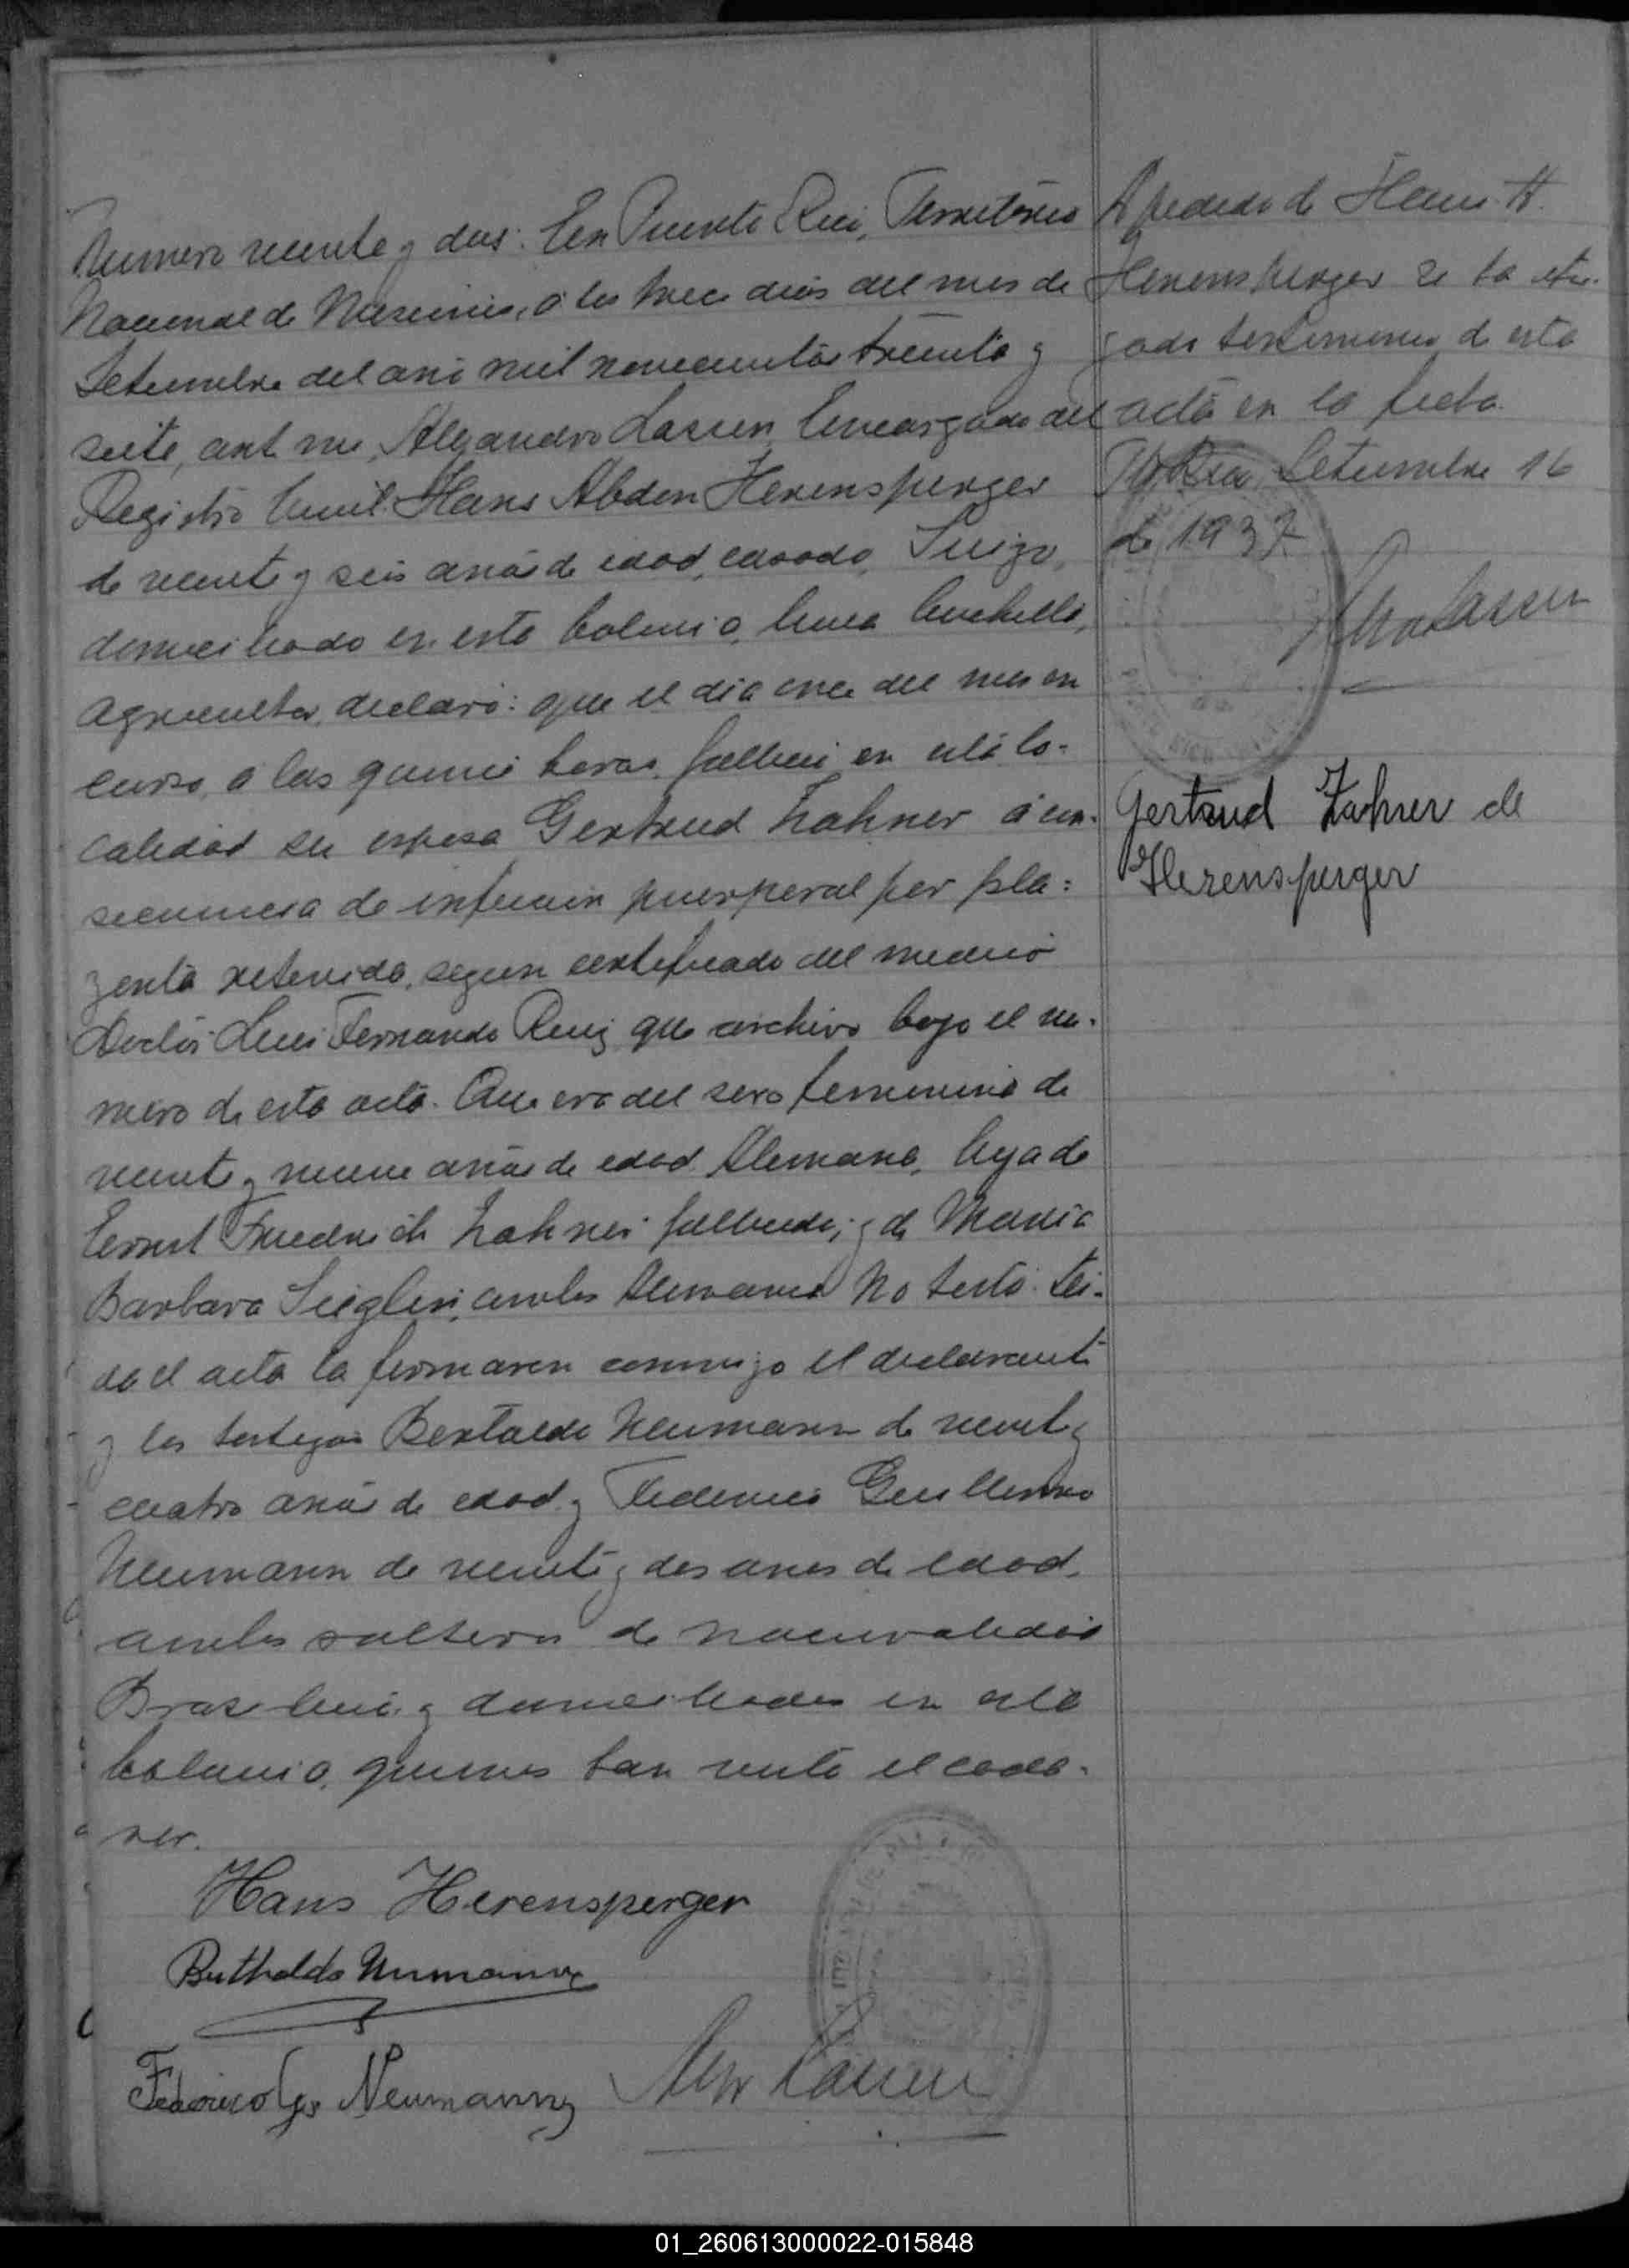 Numero veinte y dos: En Puerto Rico, Territorio
Nacional de Misiones, á los trece dias del mes de
Setiembre del año mil novecientos treinta y
siete, ante mi, Alejandro Lassen, Encargado del
Registro Civil: Hans Abdon Herensperger
de veinte y seis años de edad, casado, Suizo,
domiciliado en esta Colonia, linea Cuchilla,
agricultor, declaró: que el dia once del mes en
curso, á las quince horas, falleció en esta lo-
calidad su esposa Gertrud Zahner á con-
secuencia de infeccion puerperal por pla-
zenta retenida, segun certificado del medico
Doctor Luis Fernando Ruiz que archivo bajo el nu-
mero de esta acta. Que era del sexo femenino de
veinte y nueve años de edad, Alemana, hija de
Ernst Friedrich Zahner fallecido, y de Maria
Barbara Sieglin, ambos Alemanes. No testó. Lei-
da el acta la firmaron conmigo el declarante
y los testigos Bertoldo Neumann de veinte y
cuatro años de edad y Federico Guillermo
Neumann de veinte y dos años de edad,
ambos solteros de nacionalidad
Brasilera y domiciliados en esta
Colonia, quienes han visto el cada-
ver.
Hans Herensperger
Bertholdo Neumann
Federico Gmo Neumann
Alej Lassen
A pedido de Hans A.
Herensperger se ha otor-
gado testimonio de esta
acta en la fecha.
Pto Rico, Setiembre 16
de 1937
Gertrud Zahner de
Herensperger
01_260613000022-015848